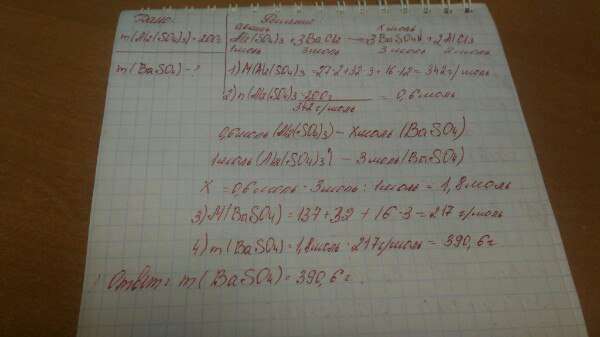 Дано:
m(Al₂(SO₄)₃) = 200г
m(BaSO₄) - ?
Решение
0,6моль х моль
Al₂(SO₄)₃ + 3BaCl₂ → 3BaSO₄ + 2AlCl₃
1моль 3моль 3 моль 2 моль
1) M(Al₂(SO₄)₃ = 27·2+32·3+16·12 = 342г/моль
2) n(Al₂(SO₄)₃ = 200г / 342г/моль = 0,6моль
0,6моль (Al₂(SO₄)₃) – Xмоль (BaSO₄)
1моль (Al₂(SO₄)₃) – 3моль (BaSO₄)
X = 0,6моль · 3моль : 1моль = 1,8моль
3) M(BaSO₄) = 137+32+16·3 = 217г/моль
4) m(BaSO₄) = 1,8моль · 217г/моль = 390,6г
Ответ: m(BaSO₄) = 390,6г.